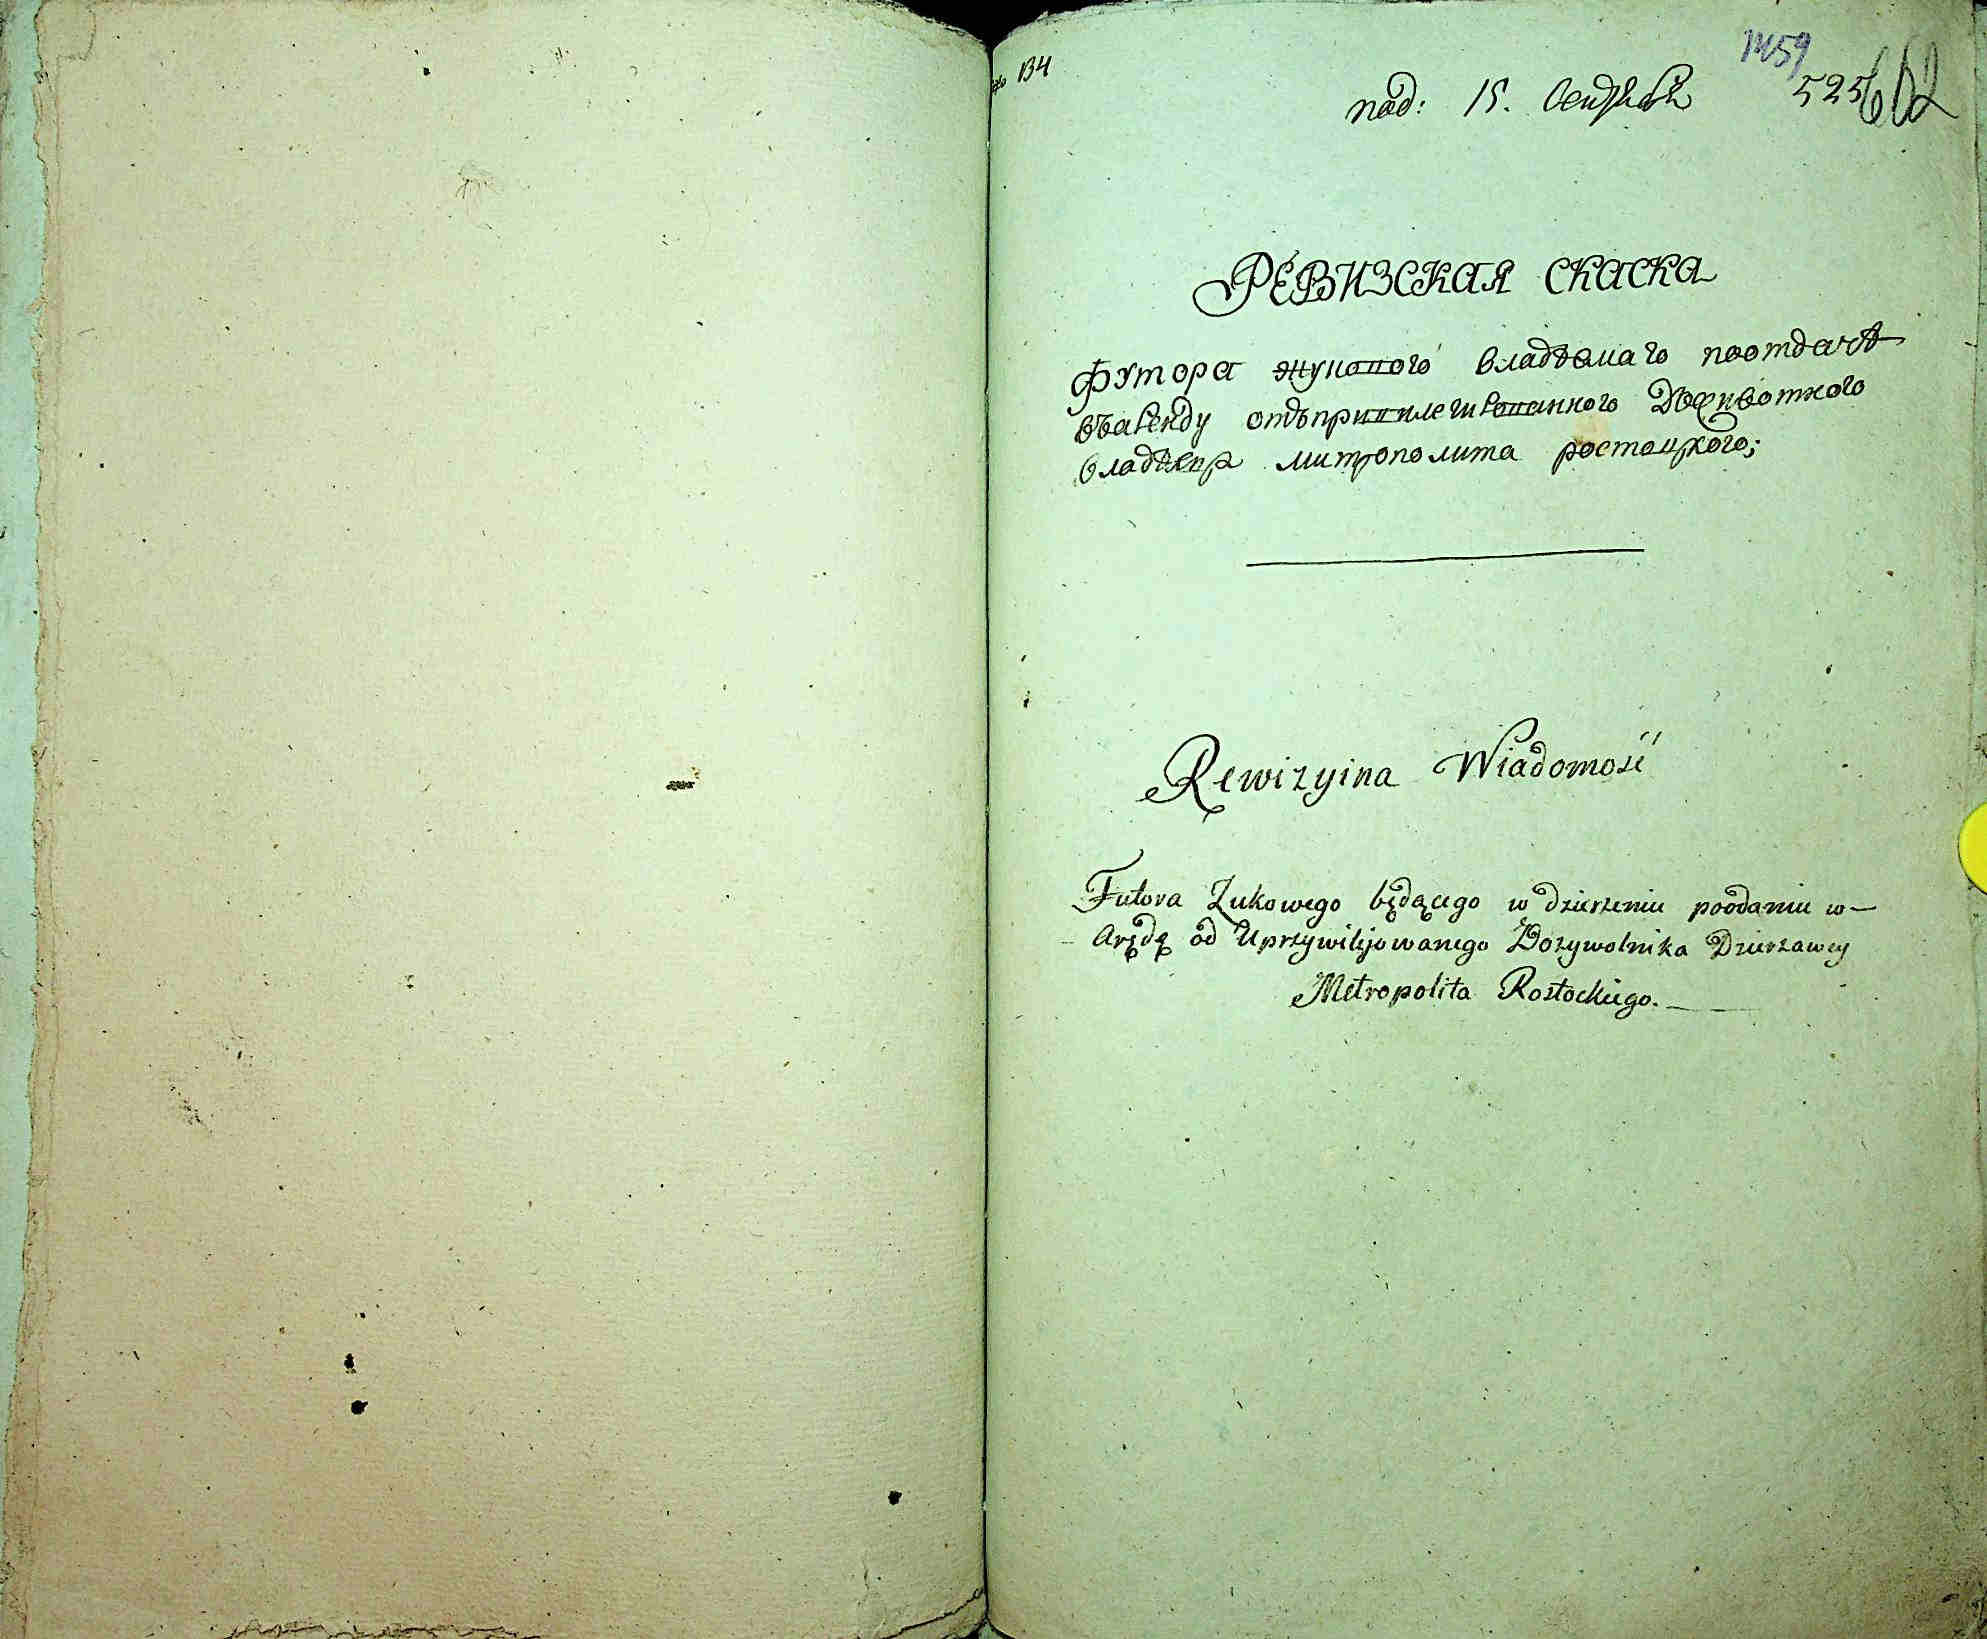 134
1459
под: 15. Сентября 525 602
РЕВИЗСКАЯ СКАСКА
Футора жукового владѣемаго поотдачѣ
въаренду отъпривилегированного Дожывотного
владѣлца митрополита ростоцкого;
Rewizyina Wiadomość
Futora Zukowego będącego w dzierzeniu poodaniu w
Arędę od Uprzywilijowanego Dozywotnika Dzierzawcy
Metropolita Rostockiego.